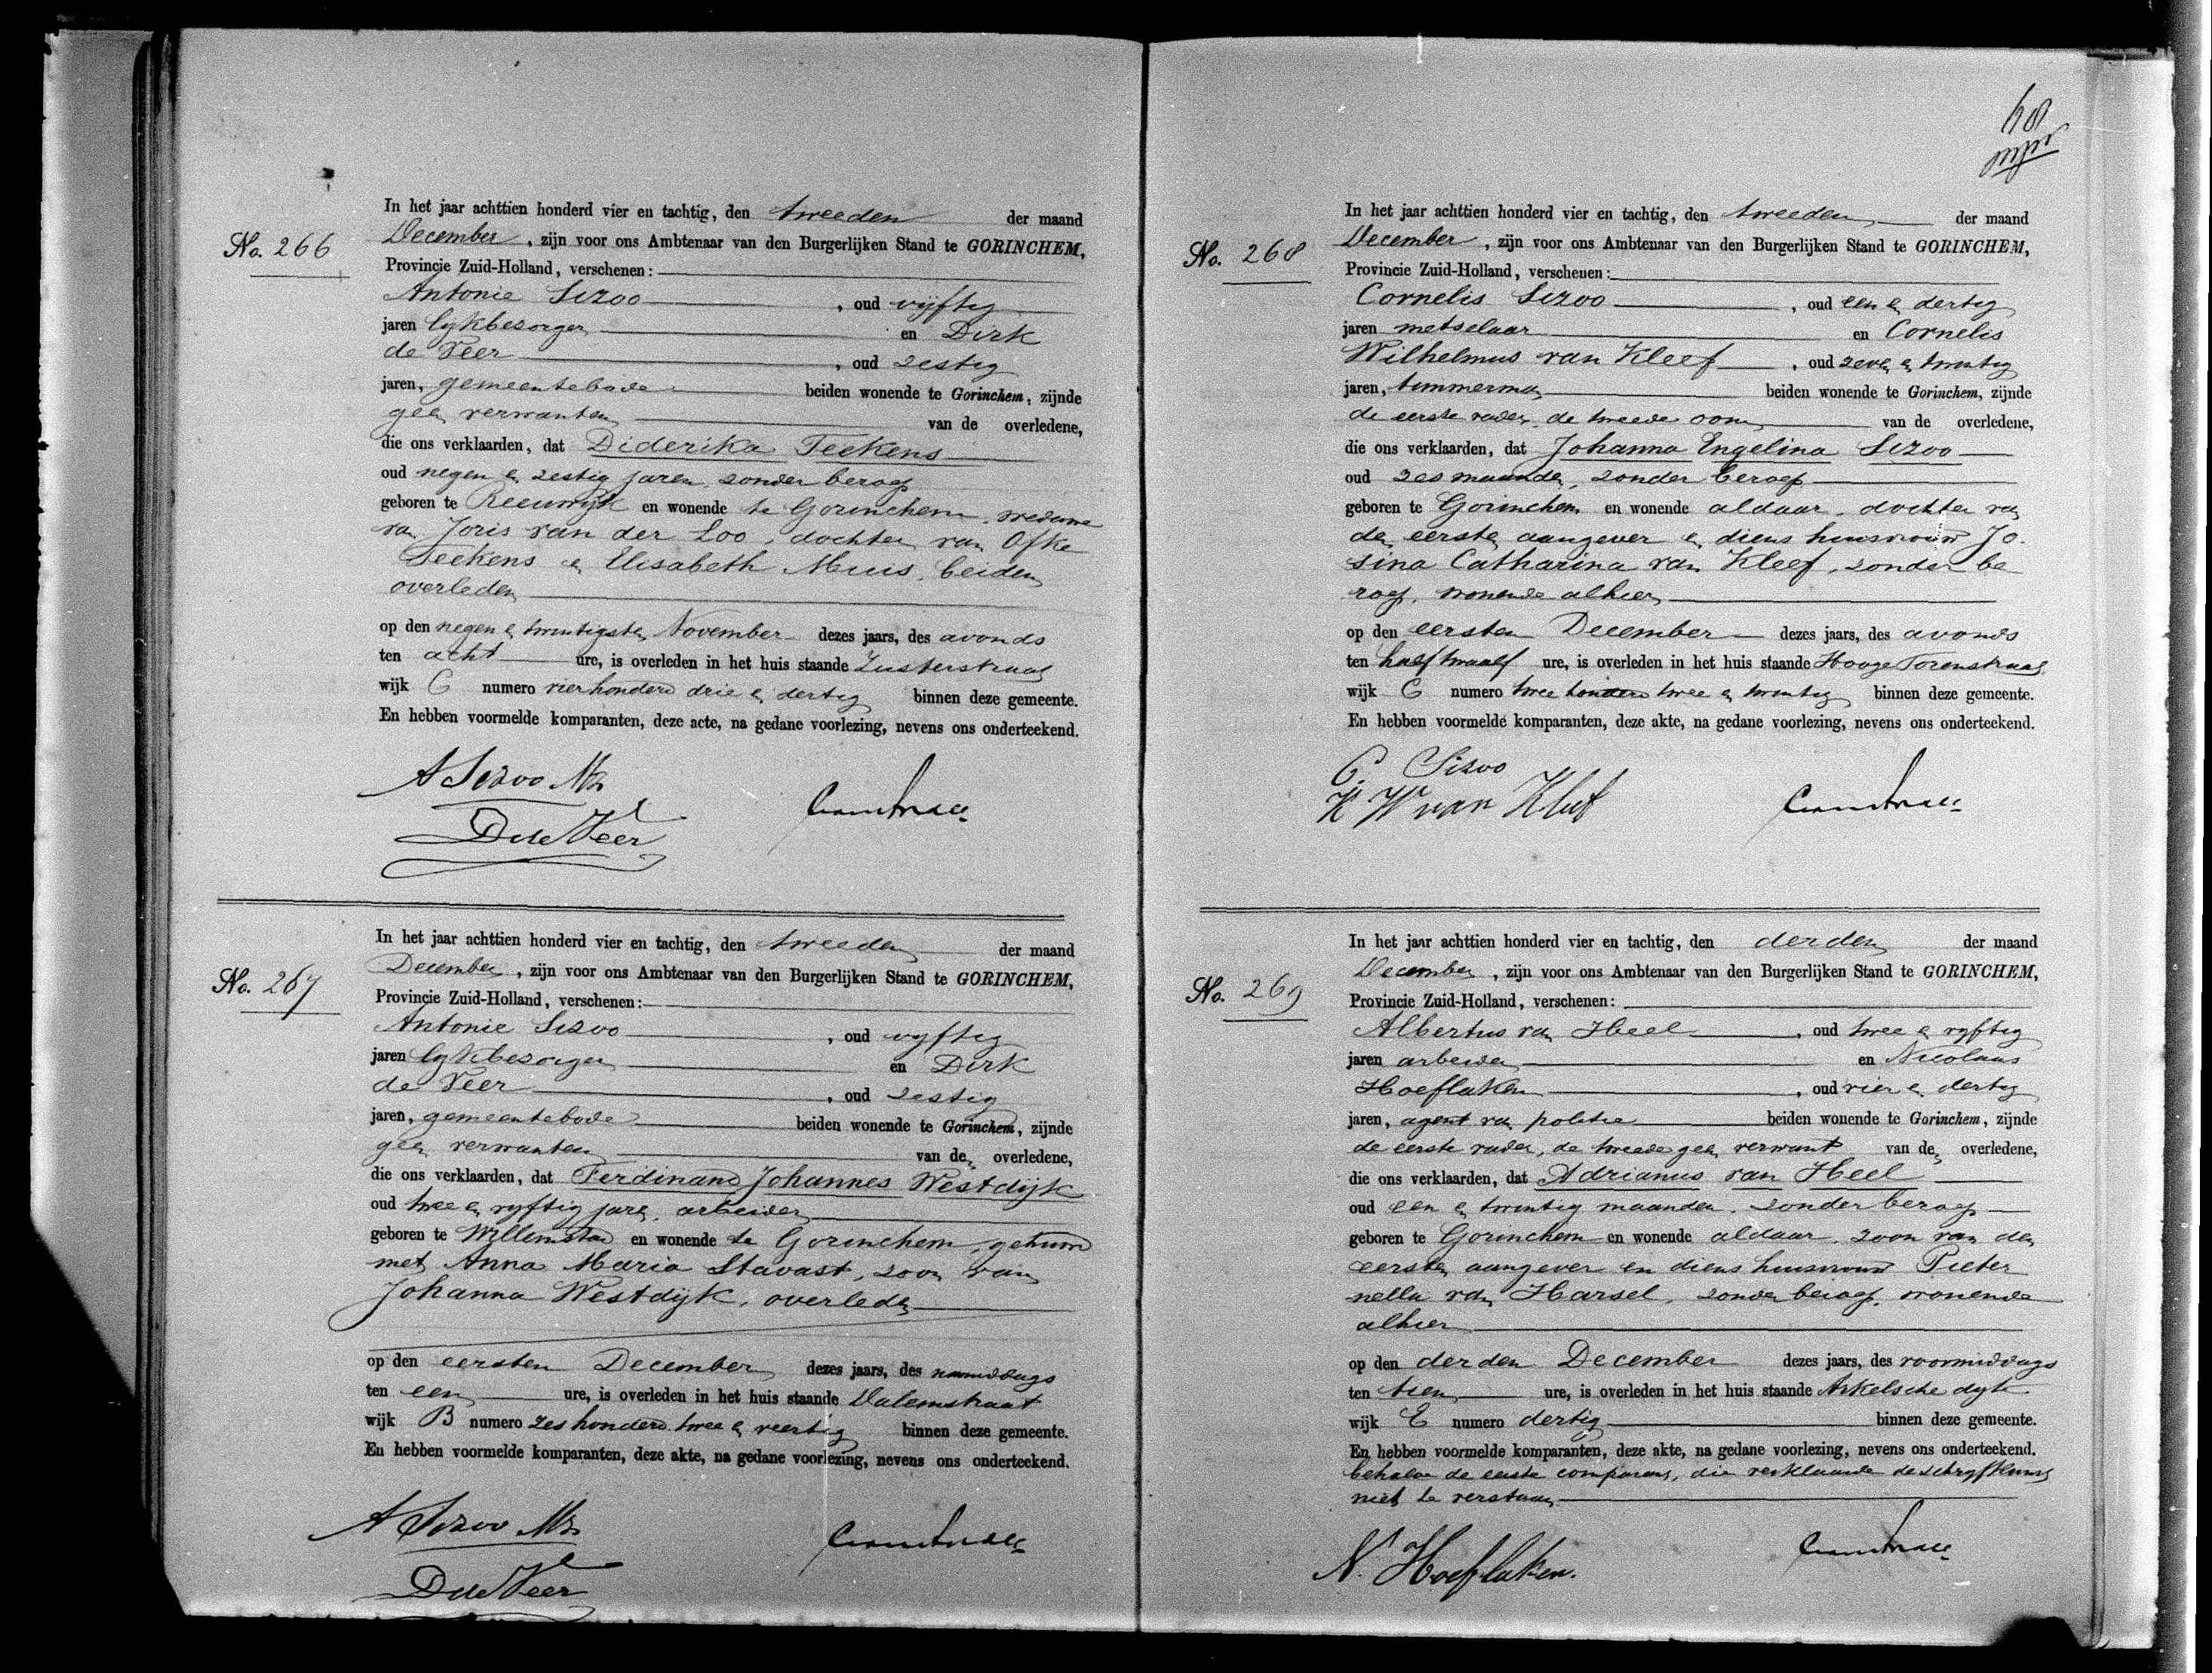 No. 266
In het jaar achttien honderd vier en tachtig, den tweeden der maand
December, zijn voor ons Ambtenaar van den Burgerlijken Stand te GORINCHEM,
Provincie Zuid-Holland, verschenen:
Antonie Sizoo, oud vijftig
jaren lykbezorger en Dirk
de Veer, oud zestig
jaren, gemeentebode beiden wonende te Gorinchem, zijnde
geen verwanten van de overledene,
die ons verklaarden, dat Diderika Teekens
oud negen en zestig jaren, zonder beroep
geboren te Reeuwijk en wonende te Gorinchem, weduwe
van Joris van der Loo, dochter van Ofke
Teekens en Elisabeth Muis, beiden
overleden
op den negen en twintigsten November dezes jaars, des avonds
ten acht ure, is overleden in het huis staande Zusterstraat
wijk C numero vierhonderd drie en dertig binnen deze gemeente.
En hebben voormelde komparanten, deze acte, na gedane voorlezing, nevens ons onderteekend.
A Sizoo Mz
D de Veer
No. 267
In het jaar achttien honderd vier en tachtig, den tweeden der maand
December, zijn voor ons Ambtenaar van den Burgerlijken Stand te GORINCHEM,
Provincie Zuid-Holland, verschenen:
Antonie Sizoo, oud vyftig
jaren lykbezorger en Dirk
de Veer, oud zestig
jaren, gemeentebode beiden wonende te Gorinchem, zijnde
geen verwanten van den overledene,
die ons verklaarden, dat Ferdinand Johannes Westdijk
oud twee en vyftig jaren, arbeider
geboren te Willemstad en wonende te Gorinchem, gehuwd
met Anna Maria Stavast, zoon van
Johanna Westdijk, overleden
op den eersten December dezes jaars, des namiddags
ten een ure, is overleden in het huis staande Dalemstraat
wijk B numero zeshonderd twee en veertig binnen deze gemeente.
En hebben voormelde komparanten, deze akte, na gedane voorlezing, nevens ons onderteekend.
A Sizoo Mz
D de Veer
No. 268
In het jaar achttien honderd vier en tachtig, den tweeden der maand
December, zijn voor ons Ambtenaar van den Burgerlijken Stand te GORINCHEM,
Provincie Zuid-Holland, verschenen:
Cornelis Sizoo, oud een en dertig
jaren metselaar en Cornelis
Wilhelmus van Kleef, oud zeven en twintig
jaren, timmerman beiden wonende te Gorinchem, zijnde
de eerste vader, de tweede oom van de overledene,
die ons verklaarden, dat Johanna Engelina Sizoo
oud zes maanden, zonder beroep
geboren te Gorinchem en wonende aldaar, dochter van
den eersten aangever en diens huisvrouw Jo-
sina Catharina van Kleef, zonder be
roep, wonende alhier
op den eersten December dezes jaars, des avonds
ten half twaalf ure, is overleden in het huis staande Hooge Torenstraat
wijk C numero twee honderd twee en twintig binnen deze gemeente.
En hebben voormelde komparanten, deze akte, na gedane voorlezing, nevens ons onderteekend.
C. Sizoo
W van Kleef
No. 269
In het jaar achttien honderd vier en tachtig, den derden der maand
December, zijn voor ons Ambtenaar van den Burgerlijken Stand te GORINCHEM,
Provincie Zuid-Holland, verschenen:
Albertus van Heel, oud twee en vyftig
jaren arbeider en Nicolaas
Hoeflaken, oud vier en dertig
jaren, agent van politie beiden wonende te Gorinchem, zijnde
de eerste vader, de tweede geen verwant van den overledene,
die ons verklaarden, dat Adrianus van Heel
oud een en twintig maanden, zonder beroep
geboren te Gorinchem en wonende aldaar, zoon van den
eersten aangever en diens huisvrouw Pieter
nella van Harsel, zonder beroep, wonende
alhier
op den derden December dezes jaars, des voormiddags
ten tien ure, is overleden in het huis staande Arkelsche dyk
wijk E numero dertig binnen deze gemeente.
En hebben voormelde komparanten, deze akte, na gedane voorlezing, nevens ons onderteekend.
behalve de eerste comparant, die verklaarde de schryfkunst
niet te verstaan
N. Hoeflaken.